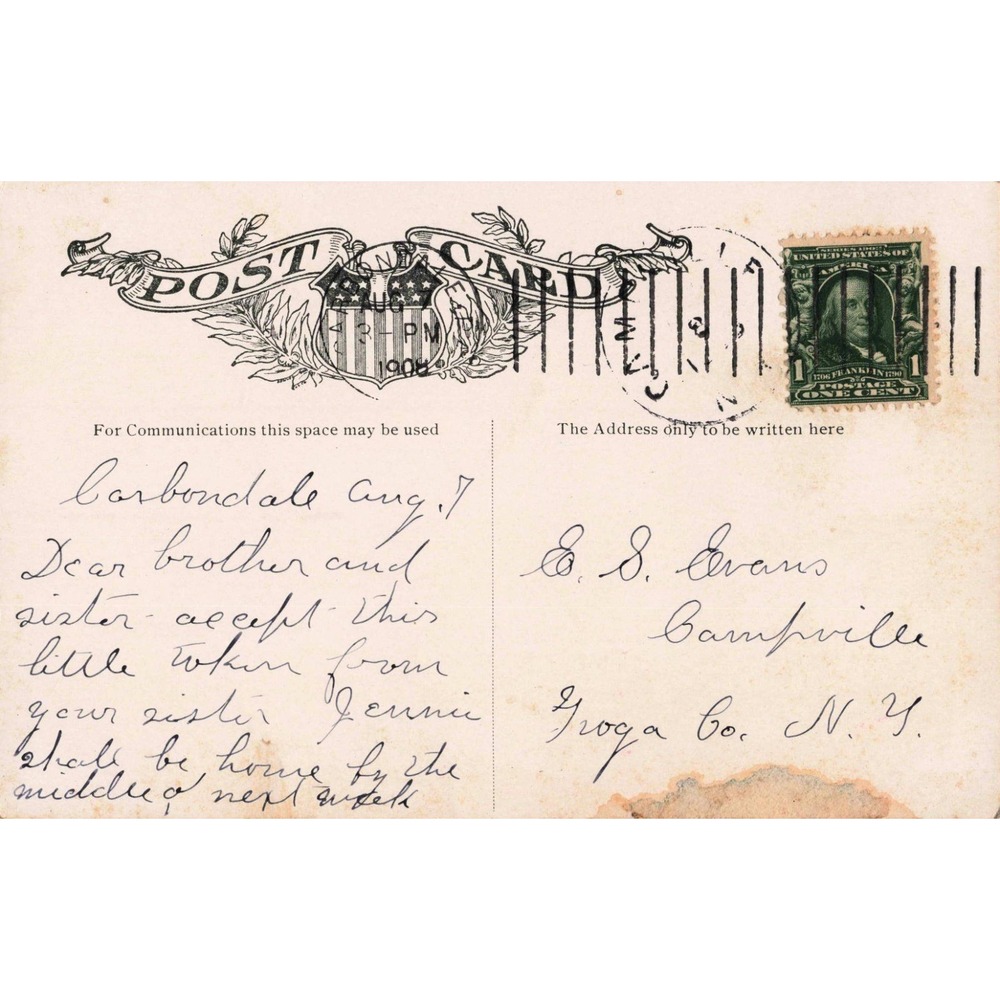 POST CARD
CARBONDALE
AUG 7
3 - PM
1908
PA
SERIES 1902
UNITED STATES OF
AMERICA
1 1
1706 FRANKLIN 1790
POSTAGE
ONE CENT
For Communications this space may be used
The Address only to be written here
Carbondale Aug. 7
Dear brother and
sister accept this
little token from
your sister Jennie
shall be home by the
middle of next week
E. S. Evans
Campville
Tioga Co. N. Y.